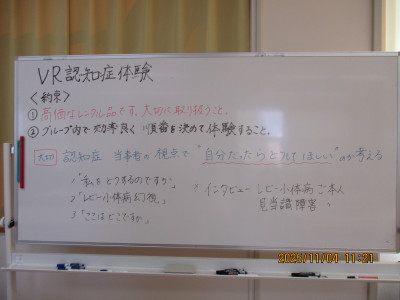 VR認知症体験
<約束>
① 高価なレンタル品です。大切に取り扱うこと。
② グループ内で効率良く 順番を決めて体験すること。
大切 認知症 当事者の視点で"自分だったらどうしてほしい"のか考える
1「私をどうするのですか」
2「レビー小体病幻視」
3「ここはどこですか」
インタビュー レビー小体病ご本人
見当識障害
2025/11/04 11:21